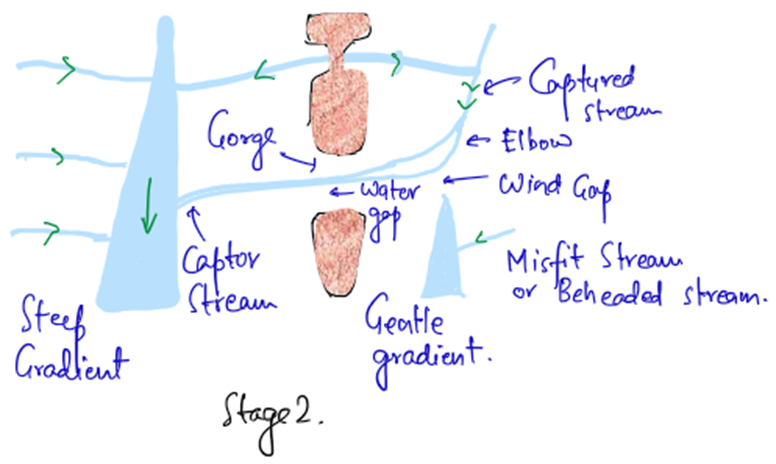 Captured
stream
Gorge
Elbow
Water
gap
Wind Gap
Captor
Stream
Misfit Stream
or Beheaded stream.
Steep
Gradient
Gentle
gradient.
Stage 2.